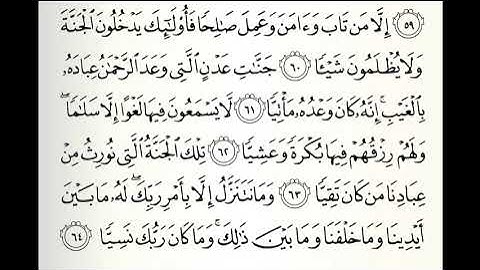 ٥٩ إِلَّا مَن تَابَ وَءَامَنَ وَعَمِلَ صَٰلِحًا فَأُو۟لَٰٓئِكَ يَدْخُلُونَ ٱلْجَنَّةَ
وَلَا يُظْلَمُونَ شَيْـًٔا ٦٠ جَنَّٰتِ عَدْنٍ ٱلَّتِى وَعَدَ ٱلرَّحْمَٰنُ عِبَادَهُۥ
بِٱلْغَيْبِ ۚ إِنَّهُۥ كَانَ وَعْدُهُۥ مَأْتِيًّا ٦١ لَّا يَسْمَعُونَ فِيهَا لَغْوًا إِلَّا سَلَٰمًا ۖ
وَلَهُمْ رِزْقُهُمْ فِيهَا بُكْرَةً وَعَشِيًّا ٦٢ تِلْكَ ٱلْجَنَّةُ ٱلَّتِى نُورِثُ مِنْ
عِبَادِنَا مَن كَانَ تَقِيًّا ٦٣ وَمَا نَتَنَزَّلُ إِلَّا بِأَمْرِ رَبِّكَ ۖ لَهُۥ مَا بَيْنَ
أَيْدِينَا وَمَا خَلْفَنَا وَمَا بَيْنَ ذَٰلِكَ ۚ وَمَا كَانَ رَبُّكَ نَسِيًّا ٦٤